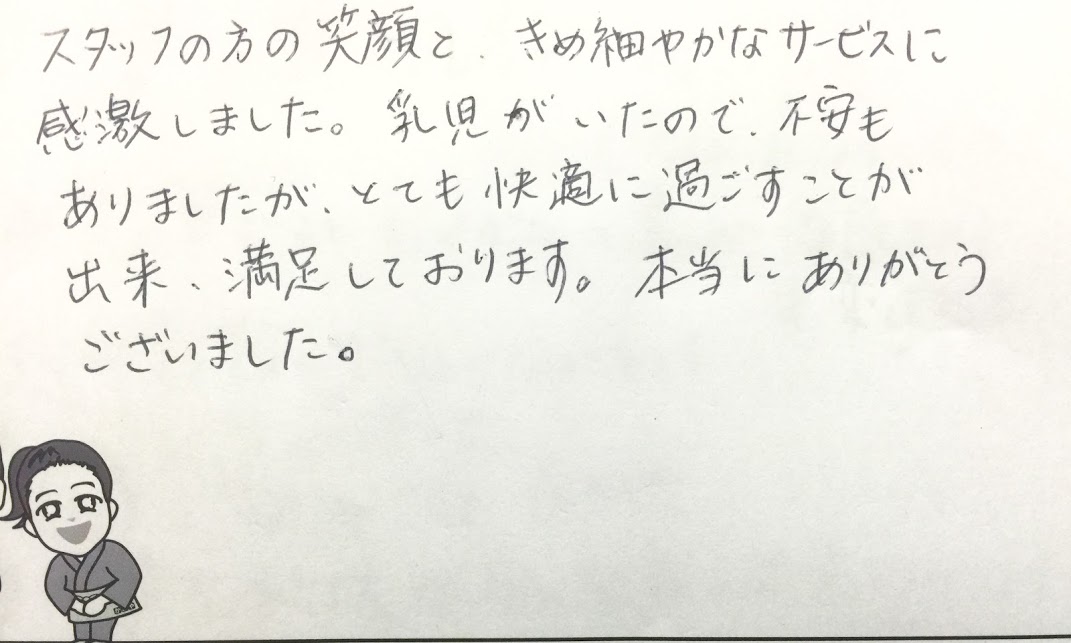 スタッフの方の笑顔と、きめ細やかなサービスに
感激しました。乳児がいたので、不安も
ありましたが、とても快適に過ごすことが
出来、満足しております。本当にありがとう
ございました。